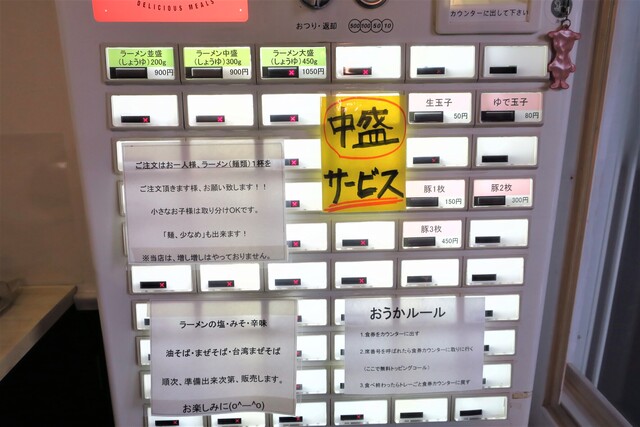 DELICIOUS MEALS
おつり・返却
500 100 50 10
カウンターに出して下さい
ラーメン並盛
(しょうゆ)200g
900円
ラーメン中盛
(しょうゆ)300g
900円
ラーメン大盛
(しょうゆ)450g
1050円
生玉子
50円
ゆで玉子
80円
中盛
サービス
豚1枚
150円
豚2枚
300円
豚3枚
450円
ご注文はお一人様、ラーメン(麺類)1杯を
ご注文頂きます様、お願い致します!!
小さなお子様は取り分けOKです。
「麺、少なめ」も出来ます!
※当店は、増し増しはやっておりません。
ラーメンの塩・みそ・辛味
油そば・まぜそば・台湾まぜそば
順次、準備出来次第、販売します。
お楽しみに(o^―^o)
おうかルール
1.食券をカウンターに出す
2.席番号を呼ばれたら食券カウンターに取りに行く
(ここで無料トッピングコール)
3.食べ終わったらトレーごと食券カウンターに戻す